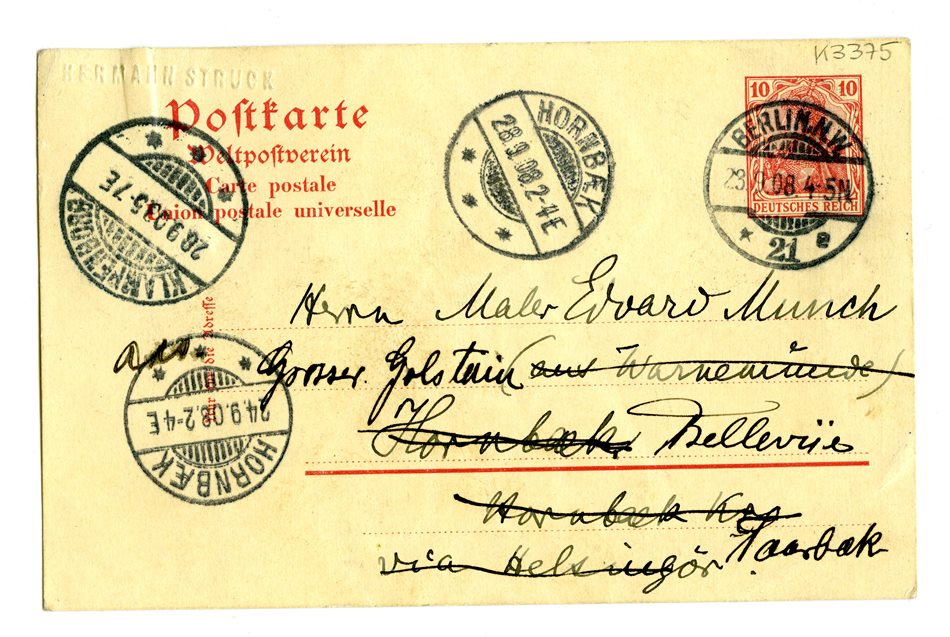 K3375
HERMANN STRUCK
Postkarte
Weltpostverein
Carte postale
Union postale universelle
Nur für die Adresse
10 10
DEUTSCHES REICH
BERLIN. N.W.
23.9.08 4-5N.
21 e
HORNBÆK
28.9.08.2-4E
KLAMPENBORG
28.9.08 5-7E
HORNBÆK
24.9.08.2-4E
Herrn Maler Edvard Munch
Grosser. Golstain (aus Warnemünde)
Hornbæk Bellevüe
Hornbæk Kro
via Helsingör Taarbæk